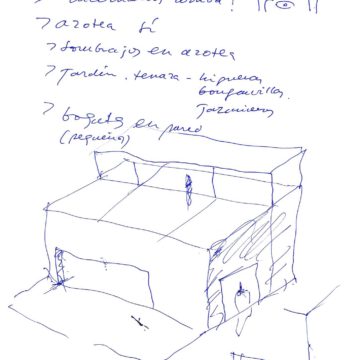 > azotea sí
> Sombrajos en azotea
> Jardín . terraza - higueras
bouganvillas
Jazmines
> boquetes en pared
(pequeños)